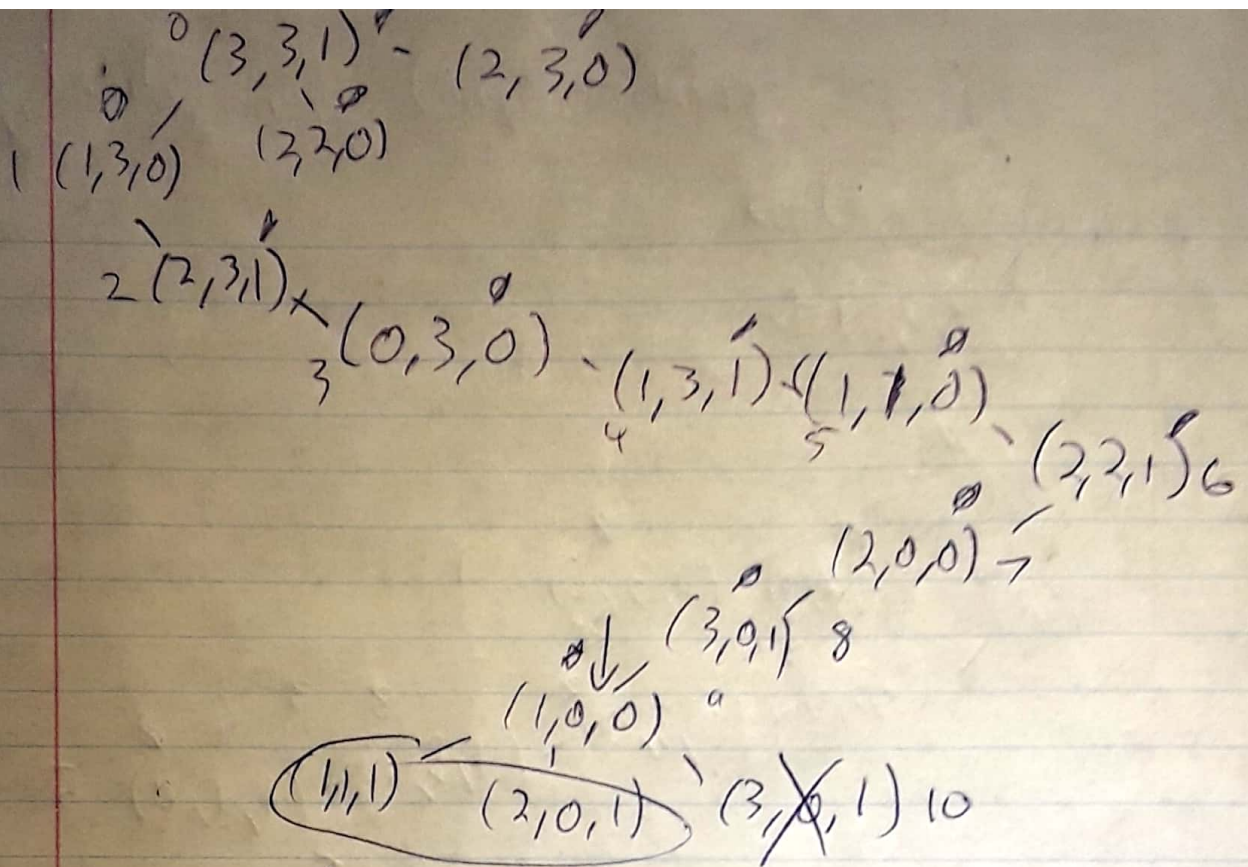 0 (3,3,1) - (2,3,0)
1 (1,3,0) (2,2,0)
2 (2,3,1)
3 (0,3,0)
4 (1,3,1) 5 (1,1,0)
(2,2,1) 6
(2,0,0) 7
(3,0,1) 8
(1,0,0) 9
(1,1,1) (2,0,1) (3,0,1) 10